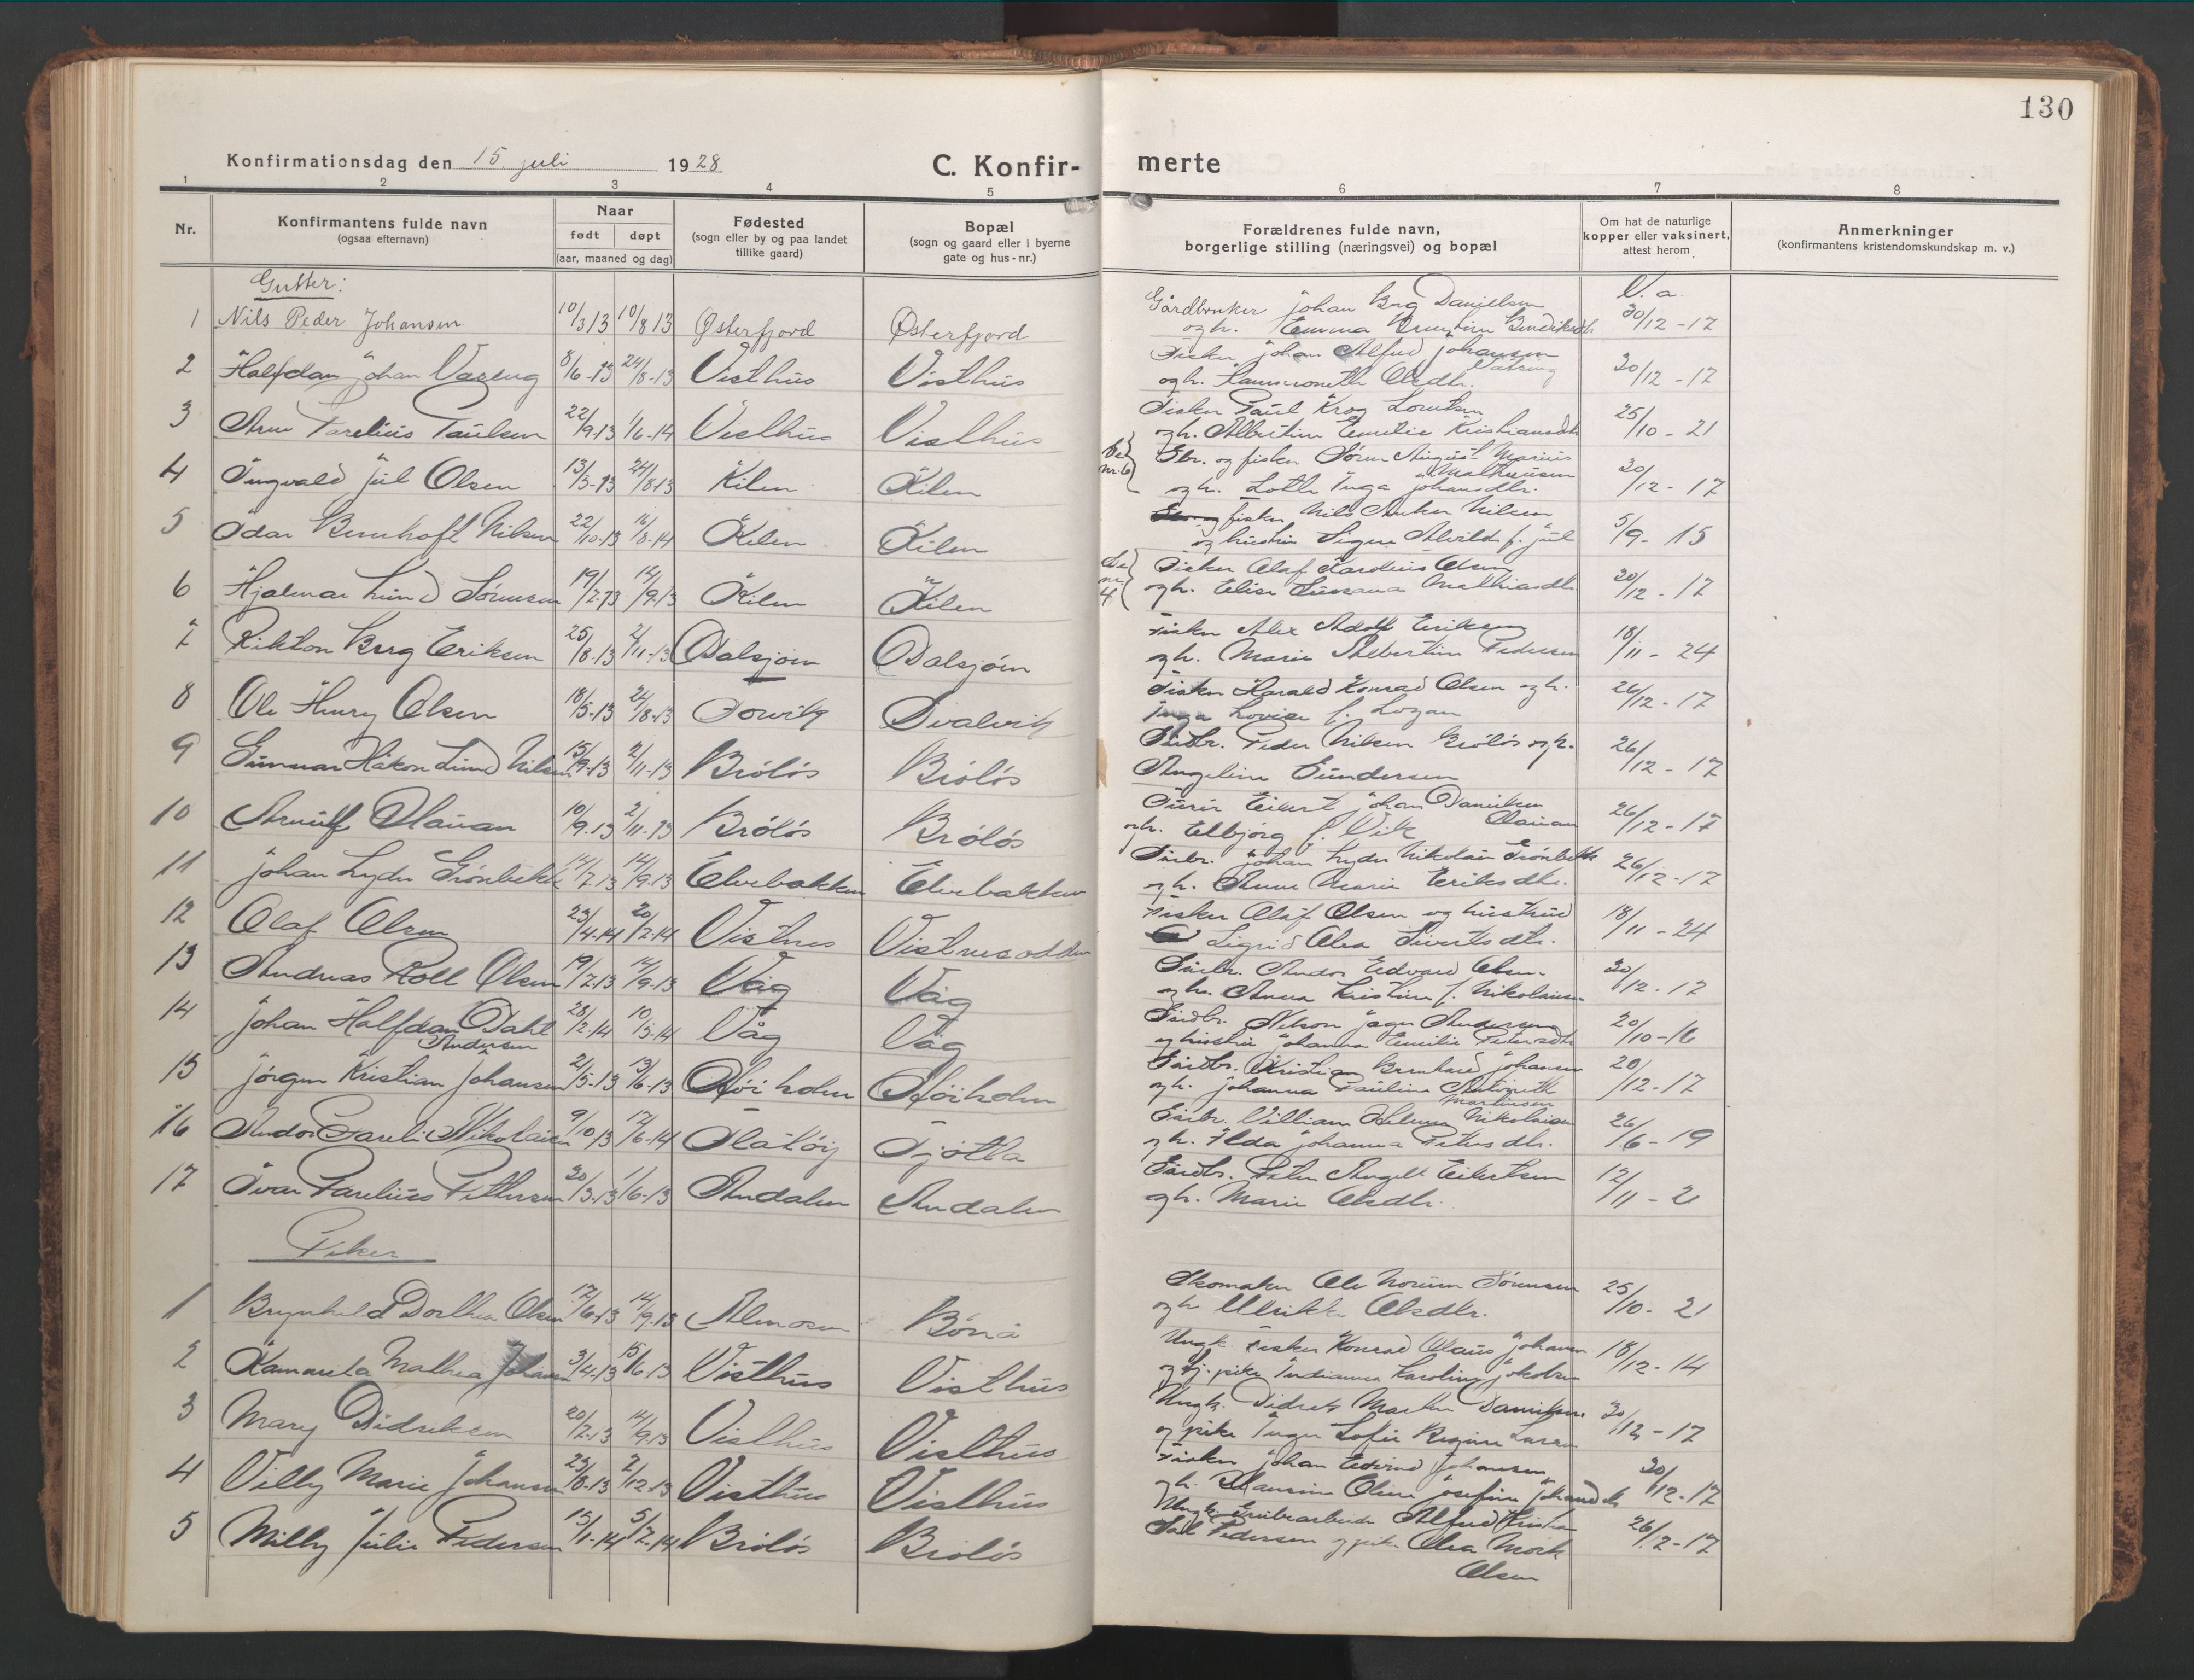 130
Konfirmationsdag den 15. juli 1928
C. Konfir- merte
1 2 3 4 5 6 7 8
Nr.
Konfirmantens fulde navn
(ogsaa efternavn)
Naar
født døpt
(aar, maaned og dag)
Fødested
(sogn eller by og paa landet
tillike gaard)
Bopæl
(sogn og gaard eller i byerne
gate og hus-nr.)
Forældrenes fulde navn,
borgerlige stilling (næringsvei) og bopæl
Om hat de naturlige
kopper eller vaksinert,
attest herom
Anmerkninger
(konfirmantens kristendomskundskap m. v.)
Gutter:
V. a.
1 Nils Peder Johansen 10/3 13 10/8 13 Østerfjord Østerfjord Gårdbruker Johan Berg Danielsen
og h. Emma 30/12-17
2 Halfdan Johan 8/6-13 24/8-13 Visthus Visthus Fisker Johan Alfred Johansen
og h. Olsdtr. 30/12-17
3 Arne Parelius Paulsen 22/9-13 1/6-14 Visthus Visthus Fisker Paul Krog Lorntsen
og h. Albertine Emelie Kristiansdtr 25/10-21
4 Ingvald Jul Olsen 13/5-13 24/8-13 Kilen Kilen Gbr. og fisker Sören August Marius
Mathiassen
og h. Inga Johansdtr. 30/12-17
5 Odar Bernhoft Nilsen 22/10-13 16/8-14 Kilen Kilen fisker Nils Anker Nilsen
og hustru Signe Alvilde f. Jul 5/9-15
6 Hjalmar Lund Sörensen 19/7-13 14/9-13 Kilen Kilen Fisker Olaf Kardius Olsen
og h. Elise Susana Mathiasdtr 30/12-17
7 Rikton Berg Eriksen 25/8-13 2/11-13 Dalsjöen Dalsjöen Fisker Alex Adolf Eriksen
og h. Marie Albertine Pedersen 18/11-24
8 Ole Henry Olsen 18/5-13 24/8-13 Forvik Svalvik Fisker Harald Konrad Olsen og h.
Inga Lovise f. 26/12-17
9 Gunnar Håkon Lund Nilsen 15/9-13 2/11-13 Brölös Brölös Gårdbr. Peder Nilsen Brölös og h.
Angeline Gundersen 26/12-17
10 Arnulf Hauan 10/9-13 2/11-13 Brölös Brölös Eilert Johan Danielsen
Hauan
og h. Elbjørg f. Vik 26/12-17
11 Johan Lyder Grönbekk 14/7-13 14/9-13 Elvebakken Elvebakken Gårbr. Johan Lyder Nikolai Grönbekk
og h. Anne Marie Eriksdtr. 26/12-17
12 Olaf Olsen 23/4-14 20/7-14 Vistnes Vistnesodden Fisker Olaf Olsen og hustru
Sigrid Olea Sivertsdtr. 18/11-24
13 Andreas Roll Olsen 19/7-13 14/9-13 Våg Våg Gårbr. Andor Edvard Olsen
og h. Anna Kristine f. Nikolaisen 30/12-17
14 Johan Halfdan Dahl
Andersen 28/2-14 10/5-14 Våg Våg Gårdbr. Nelson Jæger Andersen
og hustru Johanna Emilie Petersdtr 20/10-16
15 Jörgen Kristian Johansen 2/5-13 13/6-13 Höiholm Höiholm Gårdbr. Kristian Bernhard Johansen
og h. Johanna Pauline
Martinsen 20/12-17
16 Andor Nikolaisen 9/10-13 14/6-14 Flatöy Tjötta Gårbr. William Nikolaisen
og h. Ilda Johanna Petersdtr. 26/6-19
17 Ivar Parelius Pettersen 20/3-13 1/6-13 Andalen Andalen Gårdbr. Peter Angell Eilertsen
og h. Marie Olsdtr. 12/11-21
Piker
1 Brynhild Dorthea Olsen 12/6-13 14/9-13 Almosen Bönå Skomaker Ole Sörensen
og h Ulrikke Olsdtr. 25/10-21
2 Kamarita Mathea Johansen 3/4-13 15/6-13 Visthus Visthus Ungk. fisker Konrad Olaus Johansen
og pike Indianna Karoline Jakobsen 18/12-14
3 Mary Didriksen 20/7-13 14/9-13 Visthus Visthus Ungk. Didrik Martin Danielsen
og pike Inger Sofie Regine Larsen 30/12-17
4 Villy Marie Johansen 23/8-13 2/12-13 Visthus Visthus Fisker Johan Edvind Johansen
og h. Hansine Oline Josefine Johansdtr 30/12-17
5 Milly Julie Pedersen 13/1-14 5/7-14 Brölös Brölös Ungk. Grubearbeider Alfred Kristian
Pedersen og pike Olea Mork
Olsen 26/12-17